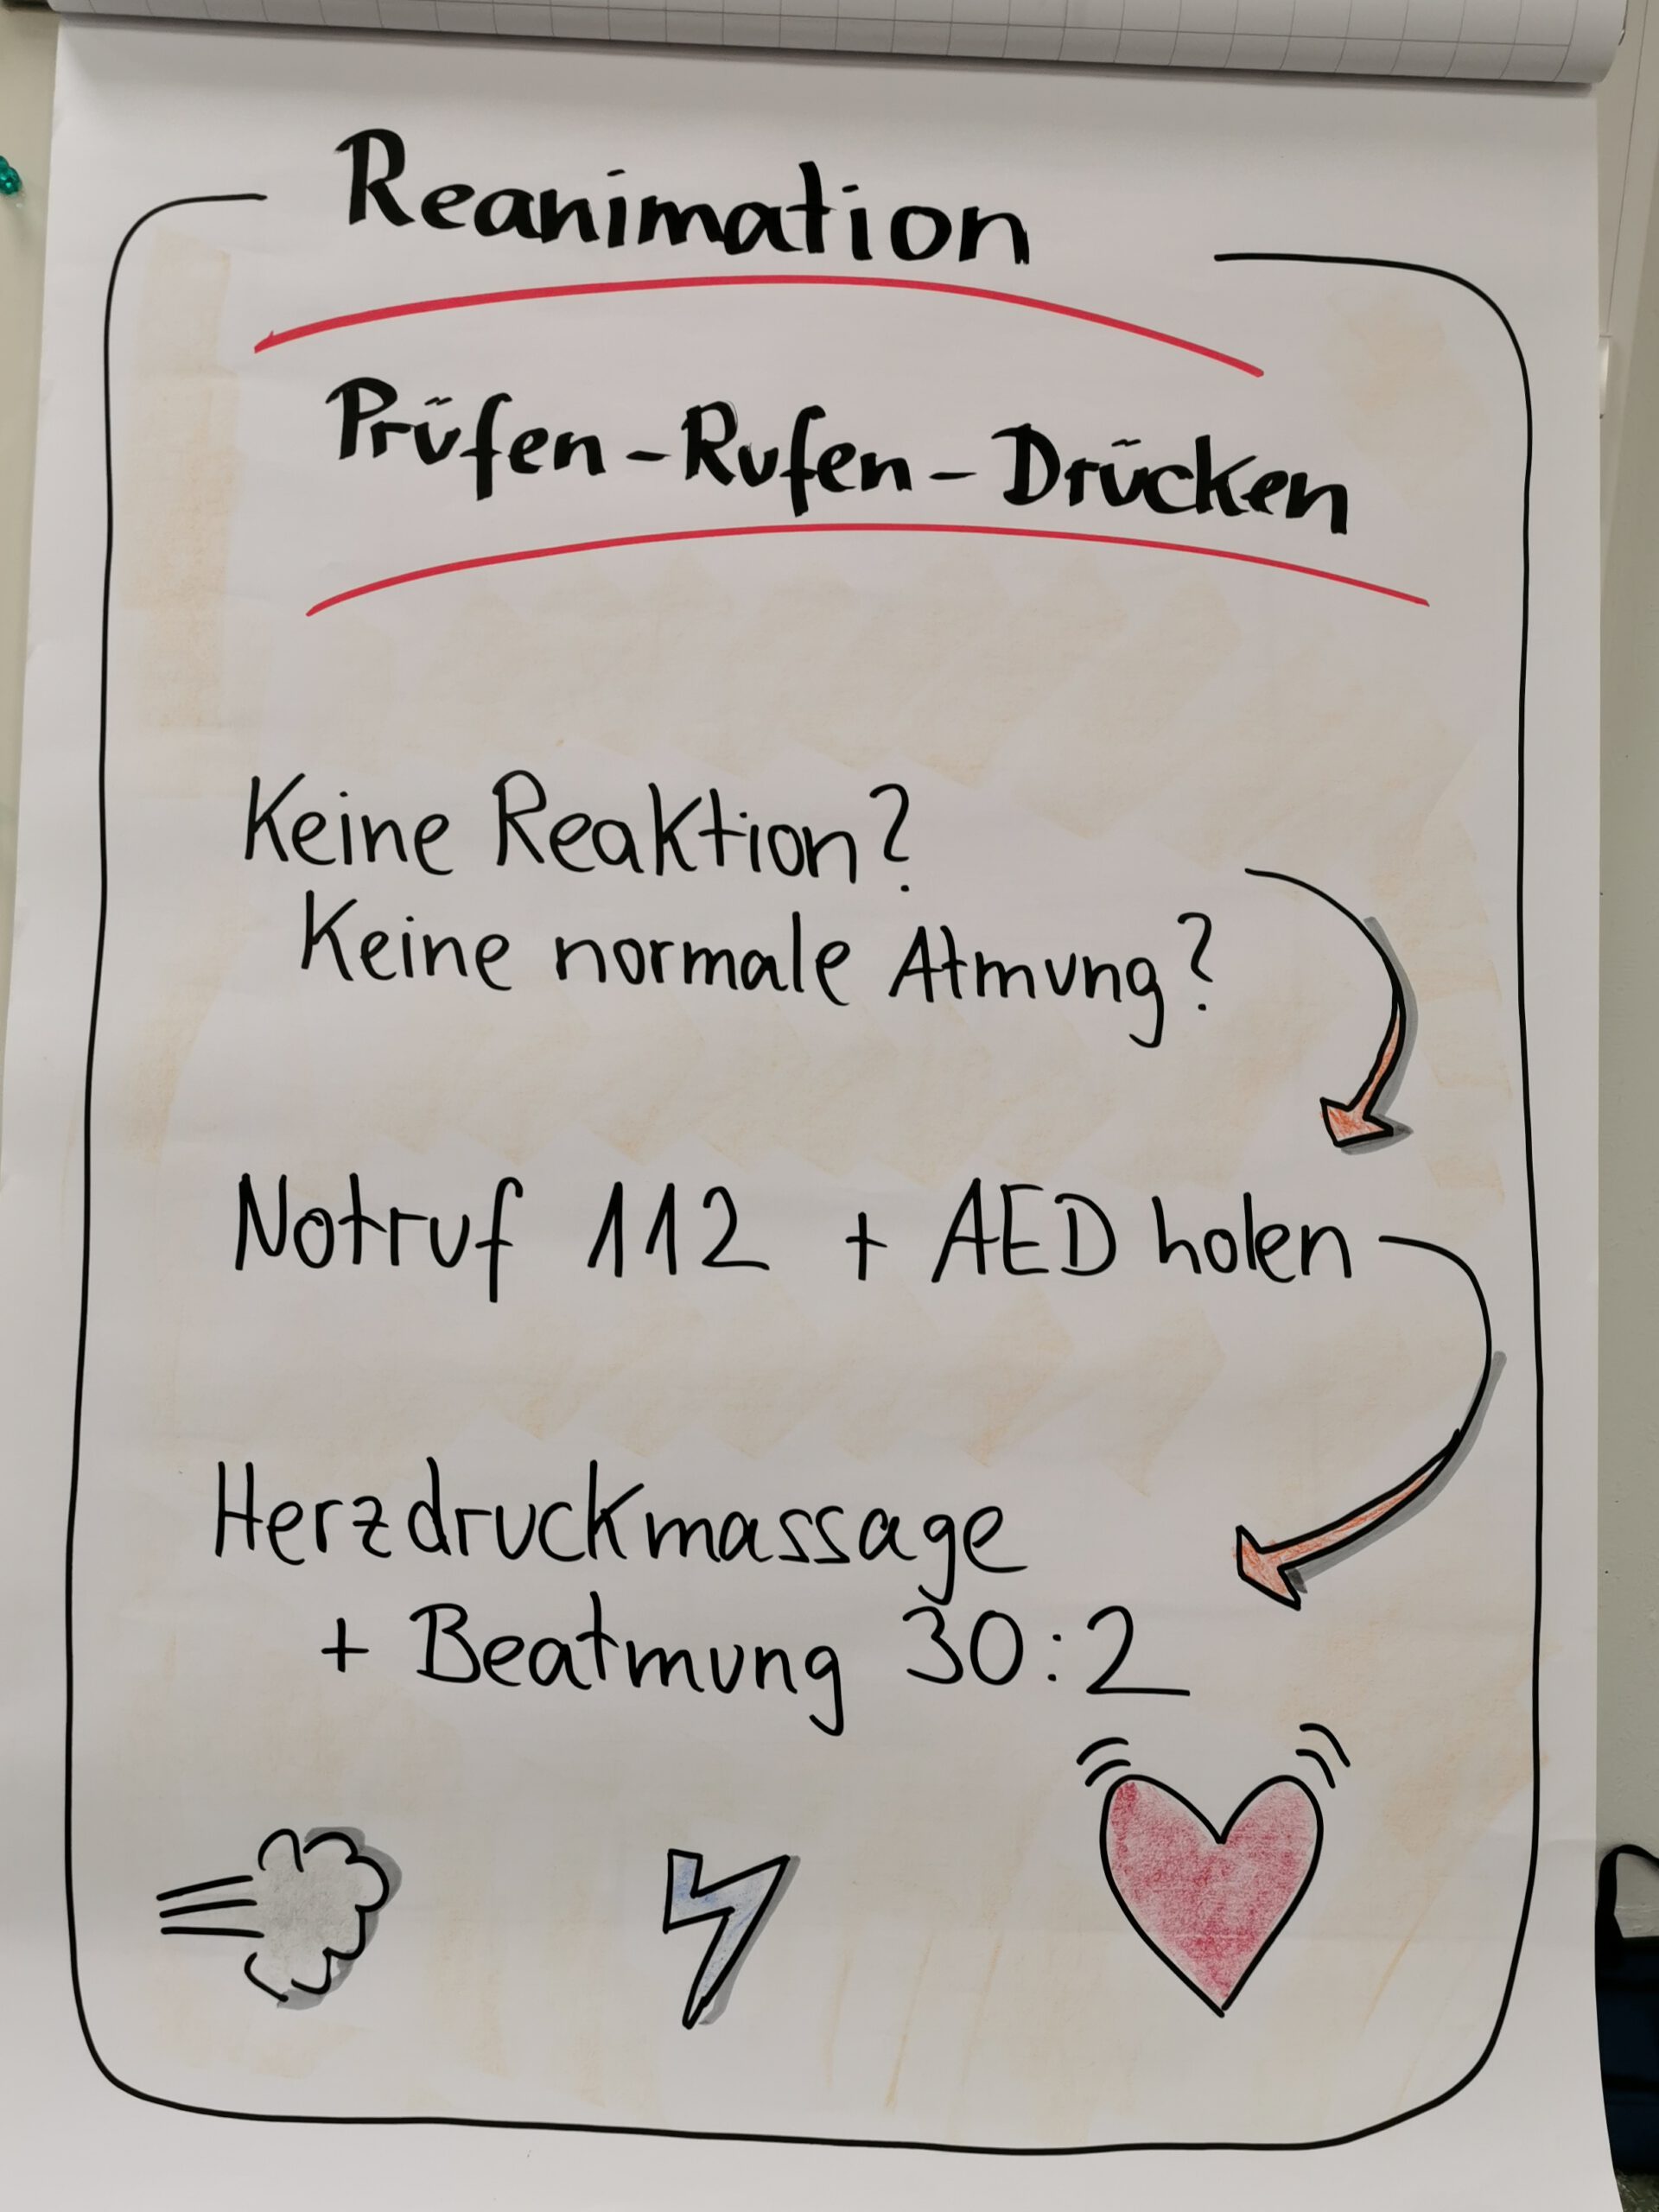 Reanimation
Prüfen-Rufen-Drücken
Keine Reaktion?
Keine normale Atmung?
Notruf 112 + AED holen
Herzdruckmassage
+ Beatmung 30:2